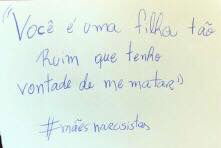 "Você é uma filha tão
Ruim que tenho
vontade de me matar"
#mãesnarcisistas